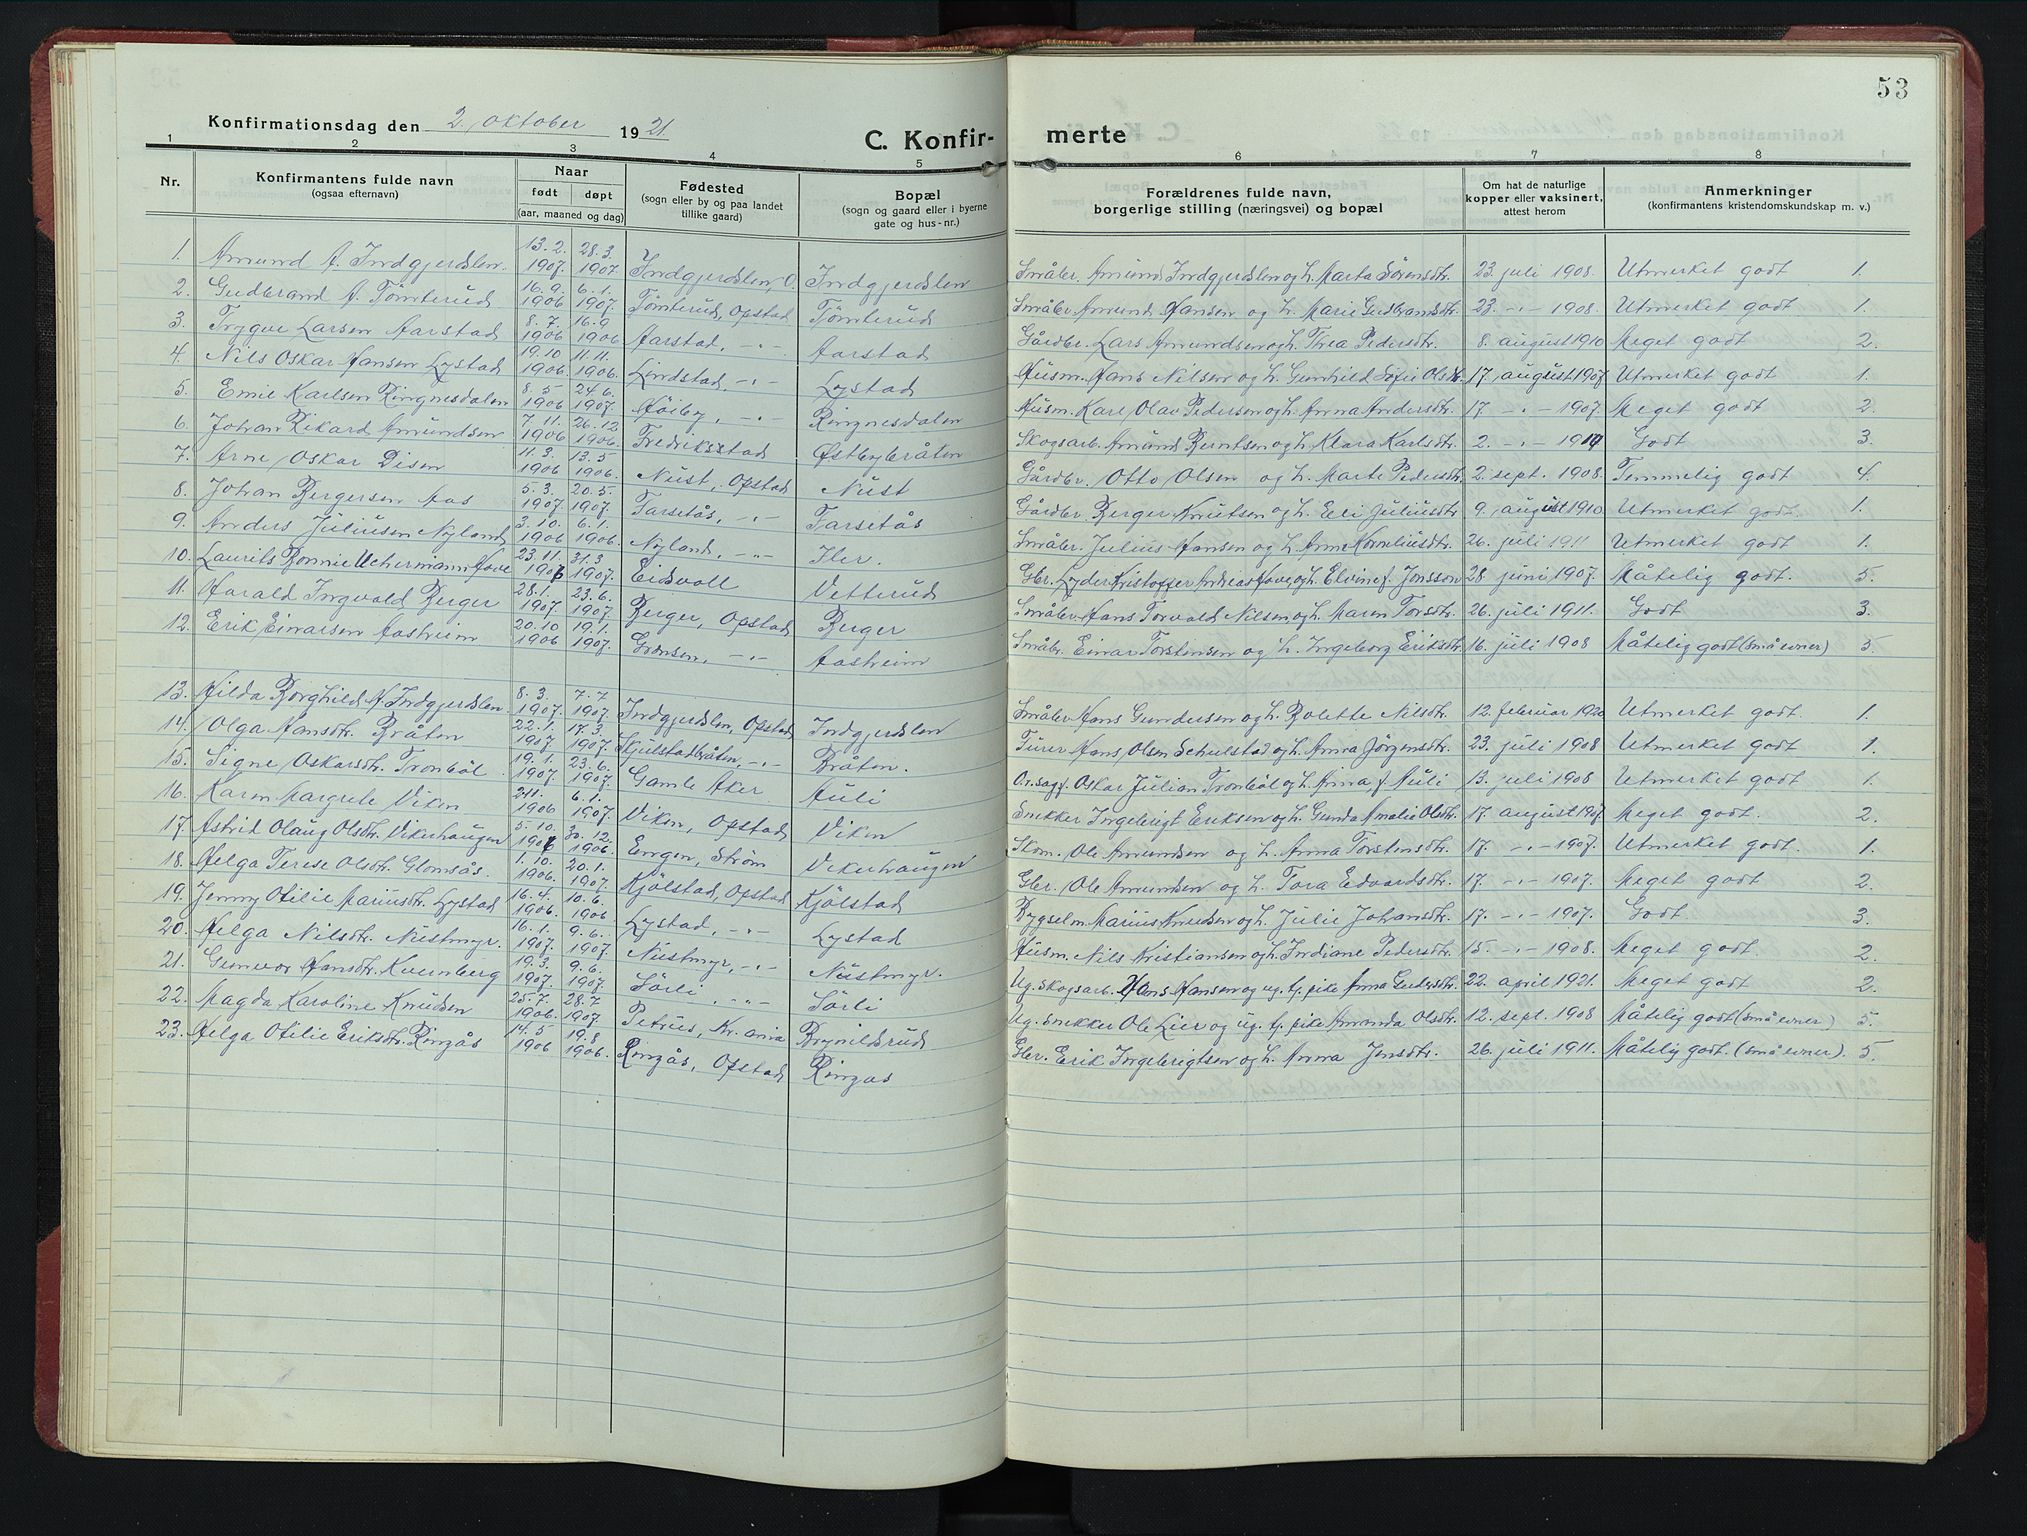 53
Konfirmationsdag den 2. oktober 1921
C. Konfirmerte
1 2 3 4 5 6 7 8
Nr.
Konfirmantens fulde navn
(ogsaa efternavn)
Naar
født døpt
(aar, maaned og dag)
Fødested
(sogn eller by og paa landet
tillike gaard)
Bopæl
(sogn og gaard eller i byerne
gate og hus-nr.)
Forældrenes fulde navn,
borgerlige stilling (næringsvei) og bopæl
Om hat de naturlige
kopper eller vaksinert,
attest herom
Anmerkninger
(konfirmantens kristendomskundskap m. v.)
1. Amund A. Indgjerdslen. 13.2. 1907. 28.3. 1907. Indgjerdslen, O. Indgjerdslen Småbr. Amund Indgjerdslen og h. Marta Sörensdtr. 23. juli 1908. Utmerket godt 1.
2. Gudbrand A. Tömterud 16.9. 1906 6.1. 1907. Tömterud, Opstad Tömterud Småbr. Amund Hansen og h. Marie Gudbrandsdtr. 23. -"- 1908. Utmerket godt 1.
3. Trygve Larsen Aarstad 8.7. 1906 16.9 1906 Aarstad, -"- Aarstad Gårdbr. Lars Amundsen og h. Thea Pedersdtr. 8. august 1910 Meget godt 2.
4. Nils Oskar Hansen Lystad 19.10 1906 11.11. 1906. Lindstad, -"- Lystad Husm. Hans Nilsen og h. Gunhild Sofie Olsdtr. 17. august 1907 Utmerket godt 1.
5. Emil Karlsen Ringnesdalen 8.5 1906 24.6. 1907. Höiby, -"- Ringnesdalen Husm. Karl Olav Pedersen og h. Anna Andersdtr. 17 -"- 1907. Meget godt 2.
6. Johan Rikard Amundsen 7.11. 1906 26.12 1906. Fredriksstad Østbybråten Skogsarb. Amund Berntsen og h. Klara Karlsdtr. 2. -"- Godt 3.
7. Arne Oskar Disen 11.3. 1906 13.5 1906. Nust, Opstad Nust Gårdbr. Otto Olsen og h. Marte Pedersdtr. 2. sept. 1908. Temmelig godt 4.
8. Johan Bergersen Aas 5.3. 1907. 20.5. 1907. Tarsetås, -"- Tarsetås Gårdbr. Berger Knutsen og h. Eli Juliusdtr. 9. august 1910 Utmerket godt 1.
9. Anders Juliusen Nyland 3.10. 1906 6.1. 1906. Nyland, -"- Iler. Småbr. Julius Hansen og h. Anne Korneliusdtr. 26. juli 1911 Utmerket godt 1.
10. Laurits Ronnie Uchermann Hove 23.11. 1906 31.3 1907. Eidsvoll Vetterud Gbr. Lyder Kristoffer Andreas Hove og h. Elvine f. Jonsson 28. juni 1907. Måtelig godt. 5.
11. Harald Ingvald Berger 28.1. 1907. 23.6. 1907 Berger, Opstad Berger Småbr. Hans Torvald Nilsen og h. Maren Torsdtr. 26. juli 1911. Godt 3.
12. Erik Einarsen Aasheim 20.10 1906 19.1. 1907. Grensen, -"- Aasheim Småbr. Einar Torstensen og h. Ingeborg Eriksdtr. 16. juli 1908 Måtelig godt (små evner) 5.
13. Hilda Borghild H. Indgjerdslen. 8.3. 1907. 7.7 1907. Indgjerdslen, Opstad Indgjerdslen Småbr. Hans Gundersen og h. Bolette Nilsdtr. 12. februar 1920 Utmerket godt. 1.
14. Olga Hansdtr. Bråten 22.1. 1907 17.3. 1907. Skjulstadbråten, -"- Bråten. Turer Hans Olsen Schulstad og h. Anna Jörgensdtr. 23. juli 1908 Utmerket godt 1.
15. Signe Oskarsdtr. Tronböl 19.1. 1907 23.6. 1907 Gamle Aker Auli Oskar Julian Tronböl og h. Anna f. Auli 13. juli 1908 Utmerket godt 1.
16. Karen Margrete Viken 1906 6.1. 1907. Viken, Opstad Viken Snekker Ingebrigt Eriksen og h. Gunda Amalie Olsdtr. 17. august 1907. Meget godt 2.
17. Astrid Olaug Olsdtr. Vikerhaugen 5.10. 1906 30.12. 1906. Engen, Ström Vikerhaugen Skom. Ole Amundsen og h. Anna Torstensdtr. 17. -"- 1907. Utmerket godt 1.
18. Helga Terese Olsdtr. Glomsås. 1.10. 1906. 20.1. 1907. Kjölstad, Opstad Kjölstad Gbr. Ole Amundsen og h. Tora Edvardsdtr. 17. -"- 1907. Meget godt 2.
19. Jenny Otilie Mariusdtr. Lystad 16.4. 1906. 10.6. 1906 Lystad, -"- Lystad Bygselm. Marius Knudsen og h. Julie Johansdtr. 17. -"- 1907. Godt. 3.
20. Helga Nilsdtr. Nustmyr. 16.1. 1907. 9.6. 1907 Nustmyr, -"- Nustmyr. Husm. Nils Kristiansen og h. Indiane Pedersdtr. 15. -"- 1908. Meget godt 2.
21. Gunvor Hansdtr. Kvernberg 19.3. 1907. 9.6. 1907. Sörli, -"- Sörli Ug. skogsarb. Hans Hansen og ug. tj. pike Anna Gudersdtr. 22. april 1921. Meget godt 2.
22. Magda Karoline Knudsen 25.7. 1906. 28.7 1907 Petrus, Kr.ania Brynildsrud Ug. snekker Ole Lier og ug. tj. pike Amanda Olsdtr. 12. sept. 1908 Måtelig godt (små evner) 5.
23. Helga Otilie Eriksdtr. Ringås 14.5 1906 19.8 1906. Ringås, Opstad Ringås Gbr. Erik Ingebrigtsen og h. Anna Jensdtr. 26. juli 1911. Måtelig godt. (små evner). 5.